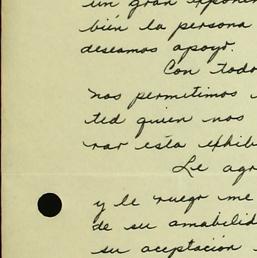 un gran exponen
bién la persona
deseamos apoyo.
Con todo
nos permitimos
ted quien nos
rar esta exhib
Le agr
y le ruego me
de su amabilid
su aceptación